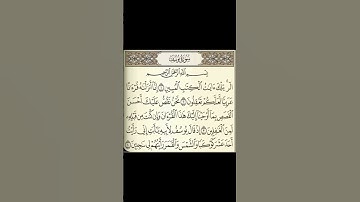 سورة يوسف
بسم الله الرحمن الرحيم
الر تلك ءايت الكتب المبين ١ إنا أنزلنه قرءنا
عربيا لعلكم تعقلون ٢ نحن نقص عليك أحسن
القصص بما أوحينا إليك هذا القرءان وإن كنت من قبله
لمن الغفلين ٣ إذ قال يوسف لأبيه يأبت إني رأيت
أحد عشر كوكبا والشمس والقمر رأيتهم لي سجدين ٤